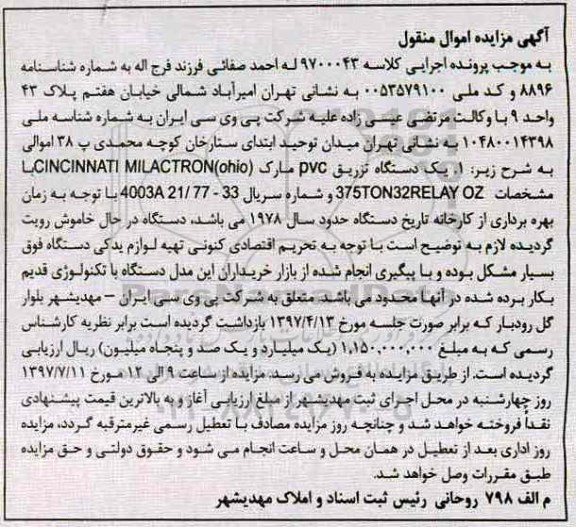 آگهی مزایده اموال منقول
به موجب پرونده اجرایی کلاسه ۹۷۰۰۰۴۳ له احمد صفائی فرزند فرج اله به شماره شناسنامه
۸۸۹۶ و کد ملی ۰۰۵۳۵۷۹۱۰۰ به نشانی تهران امیرآباد شمالی خیابان هفتم پلاک ۴۳
واحد ۹ با وکالت مرتضی عیسی زاده علیه شرکت پی وی سی ایران به شماره شناسه ملی
۱۰۴۸۰۰۱۴۳۹۸ به نشانی تهران میدان توحید ابتدای ستارخان کوچه محمدی پ ۳۸ اموالی
به شرح زیر: ۱. یک دستگاه تزریق pvc مارک CINCINNATI MILACTRON(ohio)با
مشخصات 375TON32RELAY OZ و شماره سریال 33 - 77 /21 4003A با توجه به زمان
بهره برداری از کارخانه تاریخ دستگاه حدود سال ۱۹۷۸ می باشد، دستگاه در حال خاموش رویت
گردیده لازم به توضیح است با توجه به تحریم اقتصادی کنونی تهیه لوازم یدکی دستگاه فوق
بسیار مشکل بوده و با پیگیری انجام شده از بازار خریداران این مدل دستگاه با تکنولوژی قدیم
بکار برده شده در آنها محدود می باشد. متعلق به شرکت پی وی سی ایران – مهدیشهر بلوار
گل رودبار که برابر صورت جلسه مورخ ۱۳۹۷/۴/۱۳ بازداشت گردیده است برابر نظریه کارشناس
رسمی که به مبلغ ۱,۱۵۰,۰۰۰,۰۰۰ (یک میلیارد و یک صد و پنجاه میلیون) ریال ارزیابی
گردیده است. از طریق مزایده به فروش می رسد. مزایده از ساعت ۹ الی ۱۲ مورخ ۱۳۹۷/۷/۱۱
روز چهارشنبه در محل اجرای ثبت مهدیشهر از مبلغ ارزیابی آغاز و به بالاترین قیمت پیشنهادی
نقداً فروخته خواهد شد و چنانچه روز مزایده مصادف با تعطیل رسمی غیرمترقبه گردد، مزایده
روز اداری بعد از تعطیل در همان محل و ساعت انجام می شود و حقوق دولتی و حق مزایده
طبق مقررات وصل خواهد شد.
م الف ۷۹۸ روحانی رئیس ثبت اسناد و املاک مهدیشهر
ParsNamadData